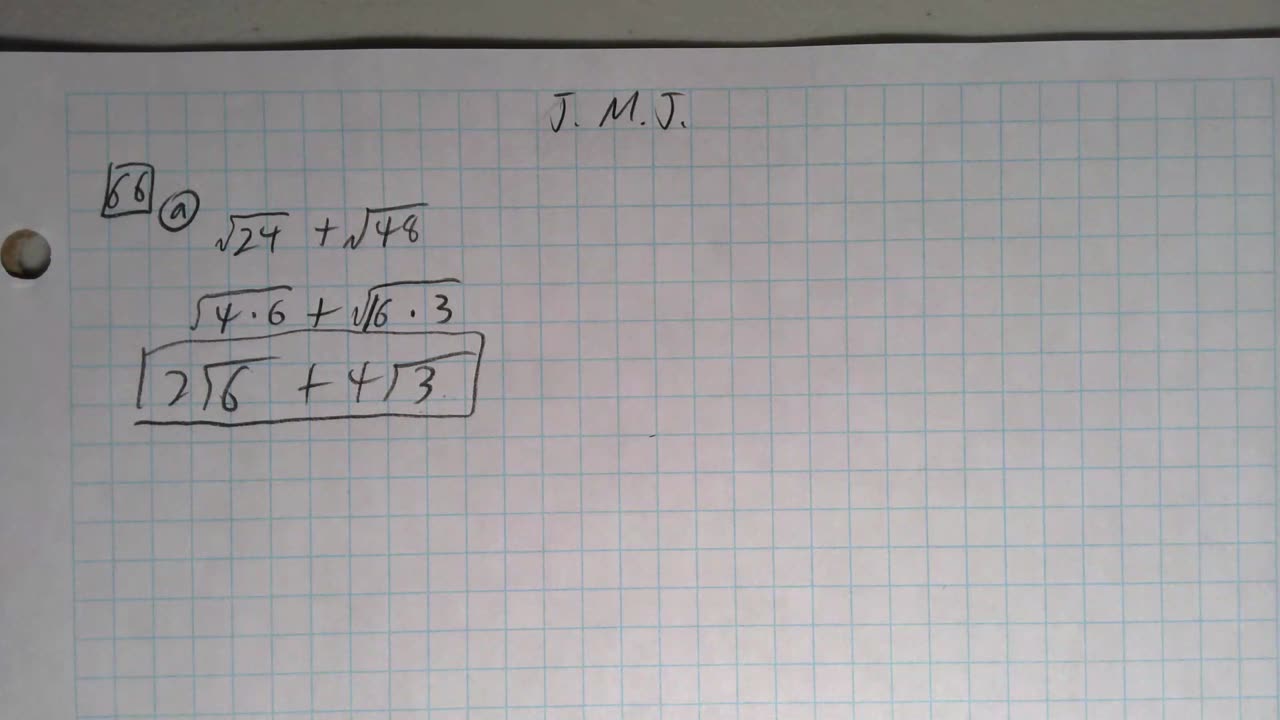 J. M. J.
66 a √24 + √48
√4·6 + √16·3
2√6 + 4√3